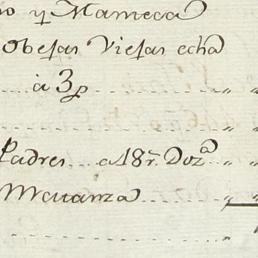 y Manteca
Obejas Viejas echa
a 3p
Padres a 18 r.ˢ Doz.ª